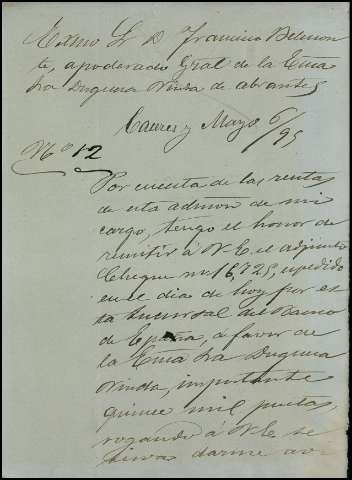 Exmo Sr D. Francisco Belmon
te, apoderado Gral de la Exma
Sra Duquesa Viuda de Abrantes
Caceres y Mayo 6/95
Nº 12
Por cuenta de las rentas
de esta admon de mi
cargo, tengo el honor de
remitir á V.E. el adjunto
Cheque nº 16,725, espedido
en el dia de hoy por es
ta Sucursal del Banco
de España, á favor de
la Exma Sra Duquesa
Viuda, importante
quince mil pesetas,
rogando á V.E. se
sirva darme avi